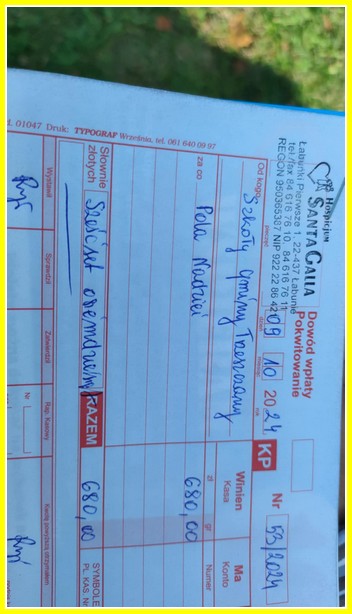 Hospicjum
SANTA GALLA
Łabuńki Pierwsze 1, 22-437 Łabunie
tel./fax 84 616 76 10, 84 616 76 11
REGON 950365387 NIP 922 22 86 42
Dowód wpłaty
Pokwitowanie
09 10 2024
KP
Nr 53/2024
Od kogo
Szkoły Gminy Trzeszczany
Winien
Kasa
Ma
Konto
za co
zł gr
Numer
Pola Nadziei 680,00
Słownie
złotych
Sześćset osiemdziesiąt
RAZEM
680,00
SYMBOLE
PL. KAS. Nr
Wystawił
Sprawdził
Zatwierdził
Rap. Kasowy
Nr
Kwotę powyższą otrzymałem
01047 Druk: TYPOGRAF Września, tel. 061 640 09 97